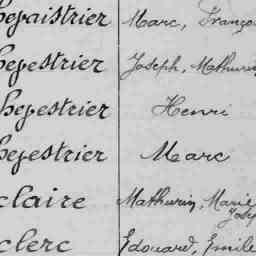 hepaistrier Marc, Franço
hepestrier Joseph, Mathurin
hepestrier Henri
hepestrier Marc
claire Mathurin, Marie
Josep
clerc Edouard, Emile